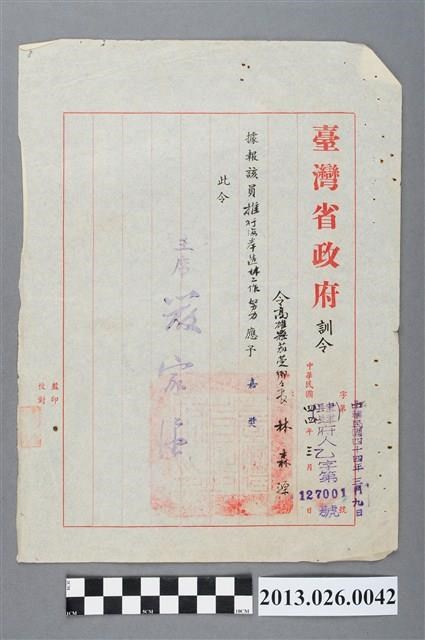 臺灣省政府訓令
中華民國四十四年三月九日
肆肆府人乙字第127001號
字第 號
中華民國四四年三月 日
令高雄縣茄萣鄉鄉長林森源
據報該員推行海岸造林工作努力應予嘉獎
此令
主席 嚴家淦
監印
校對
1CM 5CM 10CM
2013.026.0042